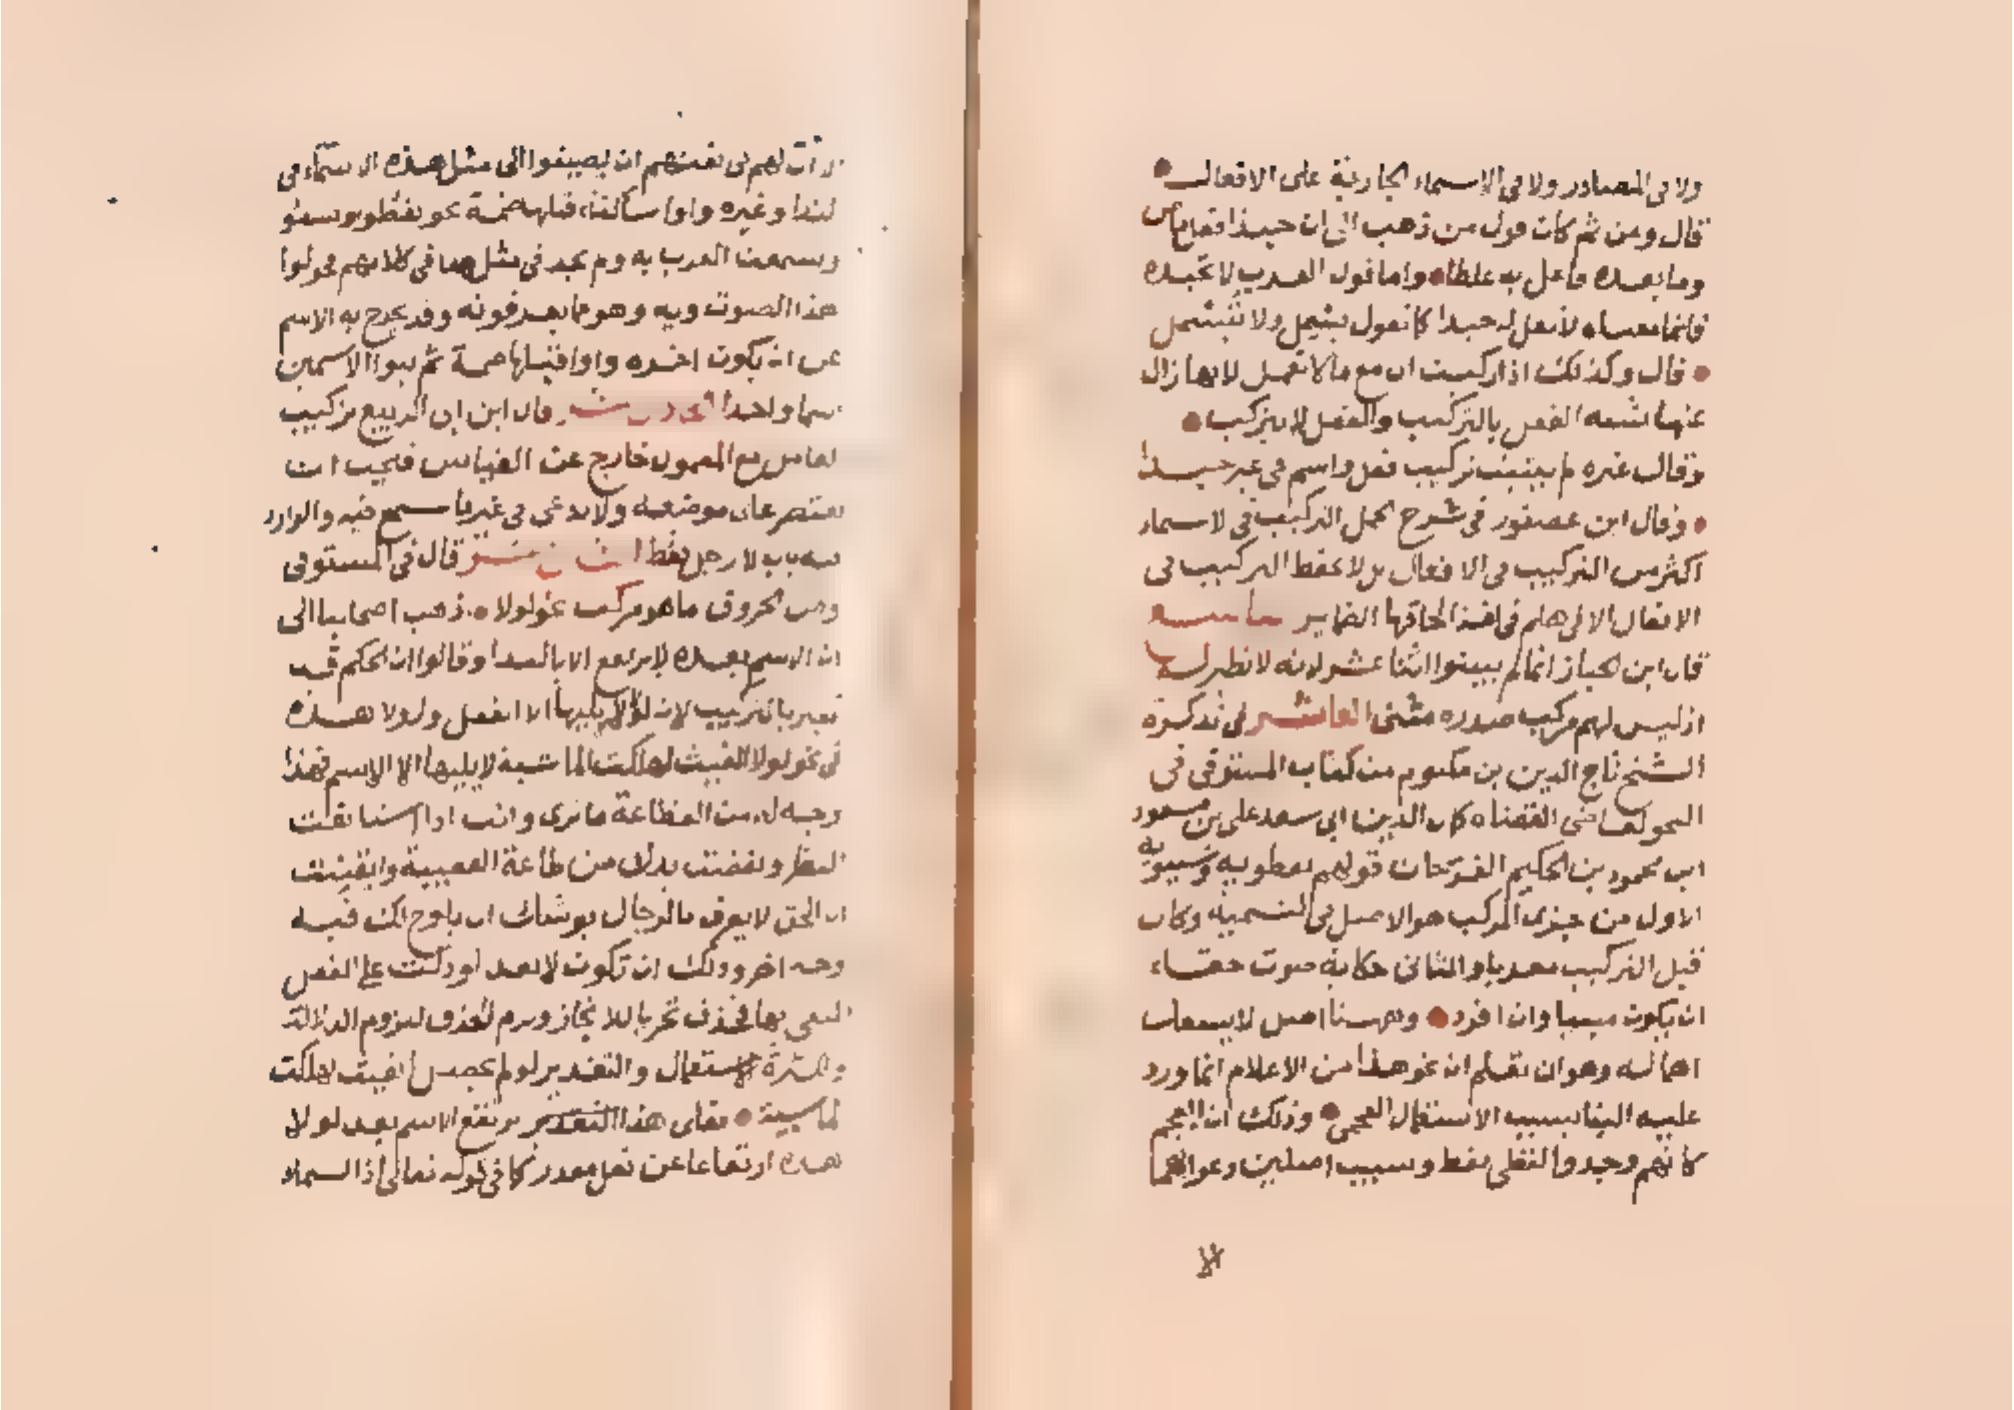 ولا في المصادر ولا في الاسماء الجارية على الافعال
قال ومن ثم كان قول من ذهب الى ان حبذا فعل
وما بعده فاعل به غلطا واما قول العرب لا تحبذه
فانما معناه لا تقل له حبذا كما تقول بسمل ولا تبسمل
قال وكذلك اذا ركبت ان مع ما لا تعمل لانها زال
عنها شبه الفعل بالتركيب والفعل لا يتركب
وقال غيره لم يثبت تركيب فعل واسم في غير حبذا
وقال ابن عصفور في شرح الجمل التركيب في الاسماء
اكثر من التركيب في الافعال بل لا يحفظ التركيب في
الافعال الا في هلم في لغة الحاقها الضماير
قال ابن الخباز انما لم يبنوا اثنا عشر لانه لا نظير له
اذ ليس لهم مركب صدره مثنى العاشر في تذكرة
الشيخ تاج الدين بن مكتوم من كتاب المستوفى في
النحو لقاضي القضاة كمال الدين ابي سعد علي بن مسعود
ابن محمود بن الحكيم الفرخان قولهم نفطويه وسيبويه
الاول من جزءى المركب هو الاصل في التسمية وكان
قبل التركيب معربا والثاني حكاية صوت حقه
ان يكون مبنيا وان افرد وههنا اصل لا يسعك
اهماله وهو ان تعلم ان نحو هذا من الاعلام انما ورد
عليه البناء بسبب الاستعمال العجمي وذلك ان العجم
كانهم وجدوا
الا
لهم في لغتهم ان يضيفوا الى مثل هذه الاسماء في
الندا وغيره واوا ساكنة قبلها ضمة نحو نفطو وسيبو
وسمعت العرب به ولم تجد في مثل هذا في كلامهم فحولوا
هذا الصوت ويه وهو مما يعرفونه وقد يخرج به الاسم
عن ان يكون اخره واوا قبلها ضمة ثم بنوا الاسمين
اسما واحدا الحادي عشر قال ابن ابي الربيع تركيب
العامل مع المعمول خارج عن القياس فيجب ان
يقتصر على موضعه ولا يدعى في غير ما سمع فيه والوارد
منه باب لا رجل فقط الثاني عشر قال في المستوفى
ومن الحروف ما هو مركب نحو لولا ذهب اصحابنا الى
ان الاسم بعده لا يرتفع الا بالابتدا وقالوا ان الحكم قد
تغير بالتركيب لان لو لا يليها الا الفعل ولولا هذه
في نحو لولا الغيث لهلكت الماشية لا يليها الا الاسم فهذا
وجه له من الفظاعة ما ترى وانت اذا استانفت
النظر ونفضت يدك من طاعة العصبية وايقنت
ان الحق لا يعرف بالرجال يوشك ان يلوح لك فيه
وجه اخر وذلك ان تكون لا بعد لو دلت على الفعل
المنفي بها فحذف تحريا للايجاز ولزم الحذف للزوم الدلالة
وكثرة الاستعمال والتقدير لو لم يحصل الغيث لهلكت
الماشية فعلى هذا التقدير يرتفع الاسم بعد لولا
هذه ارتفاعا عن فعل مقدر كما في قوله تعالى اذا السماء